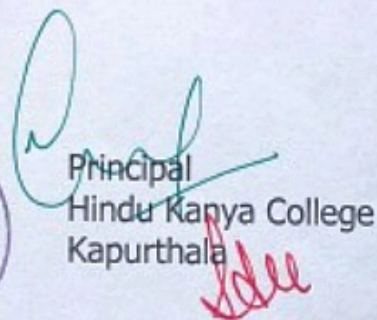 Principal
Hindu Kanya College
Kapurthala